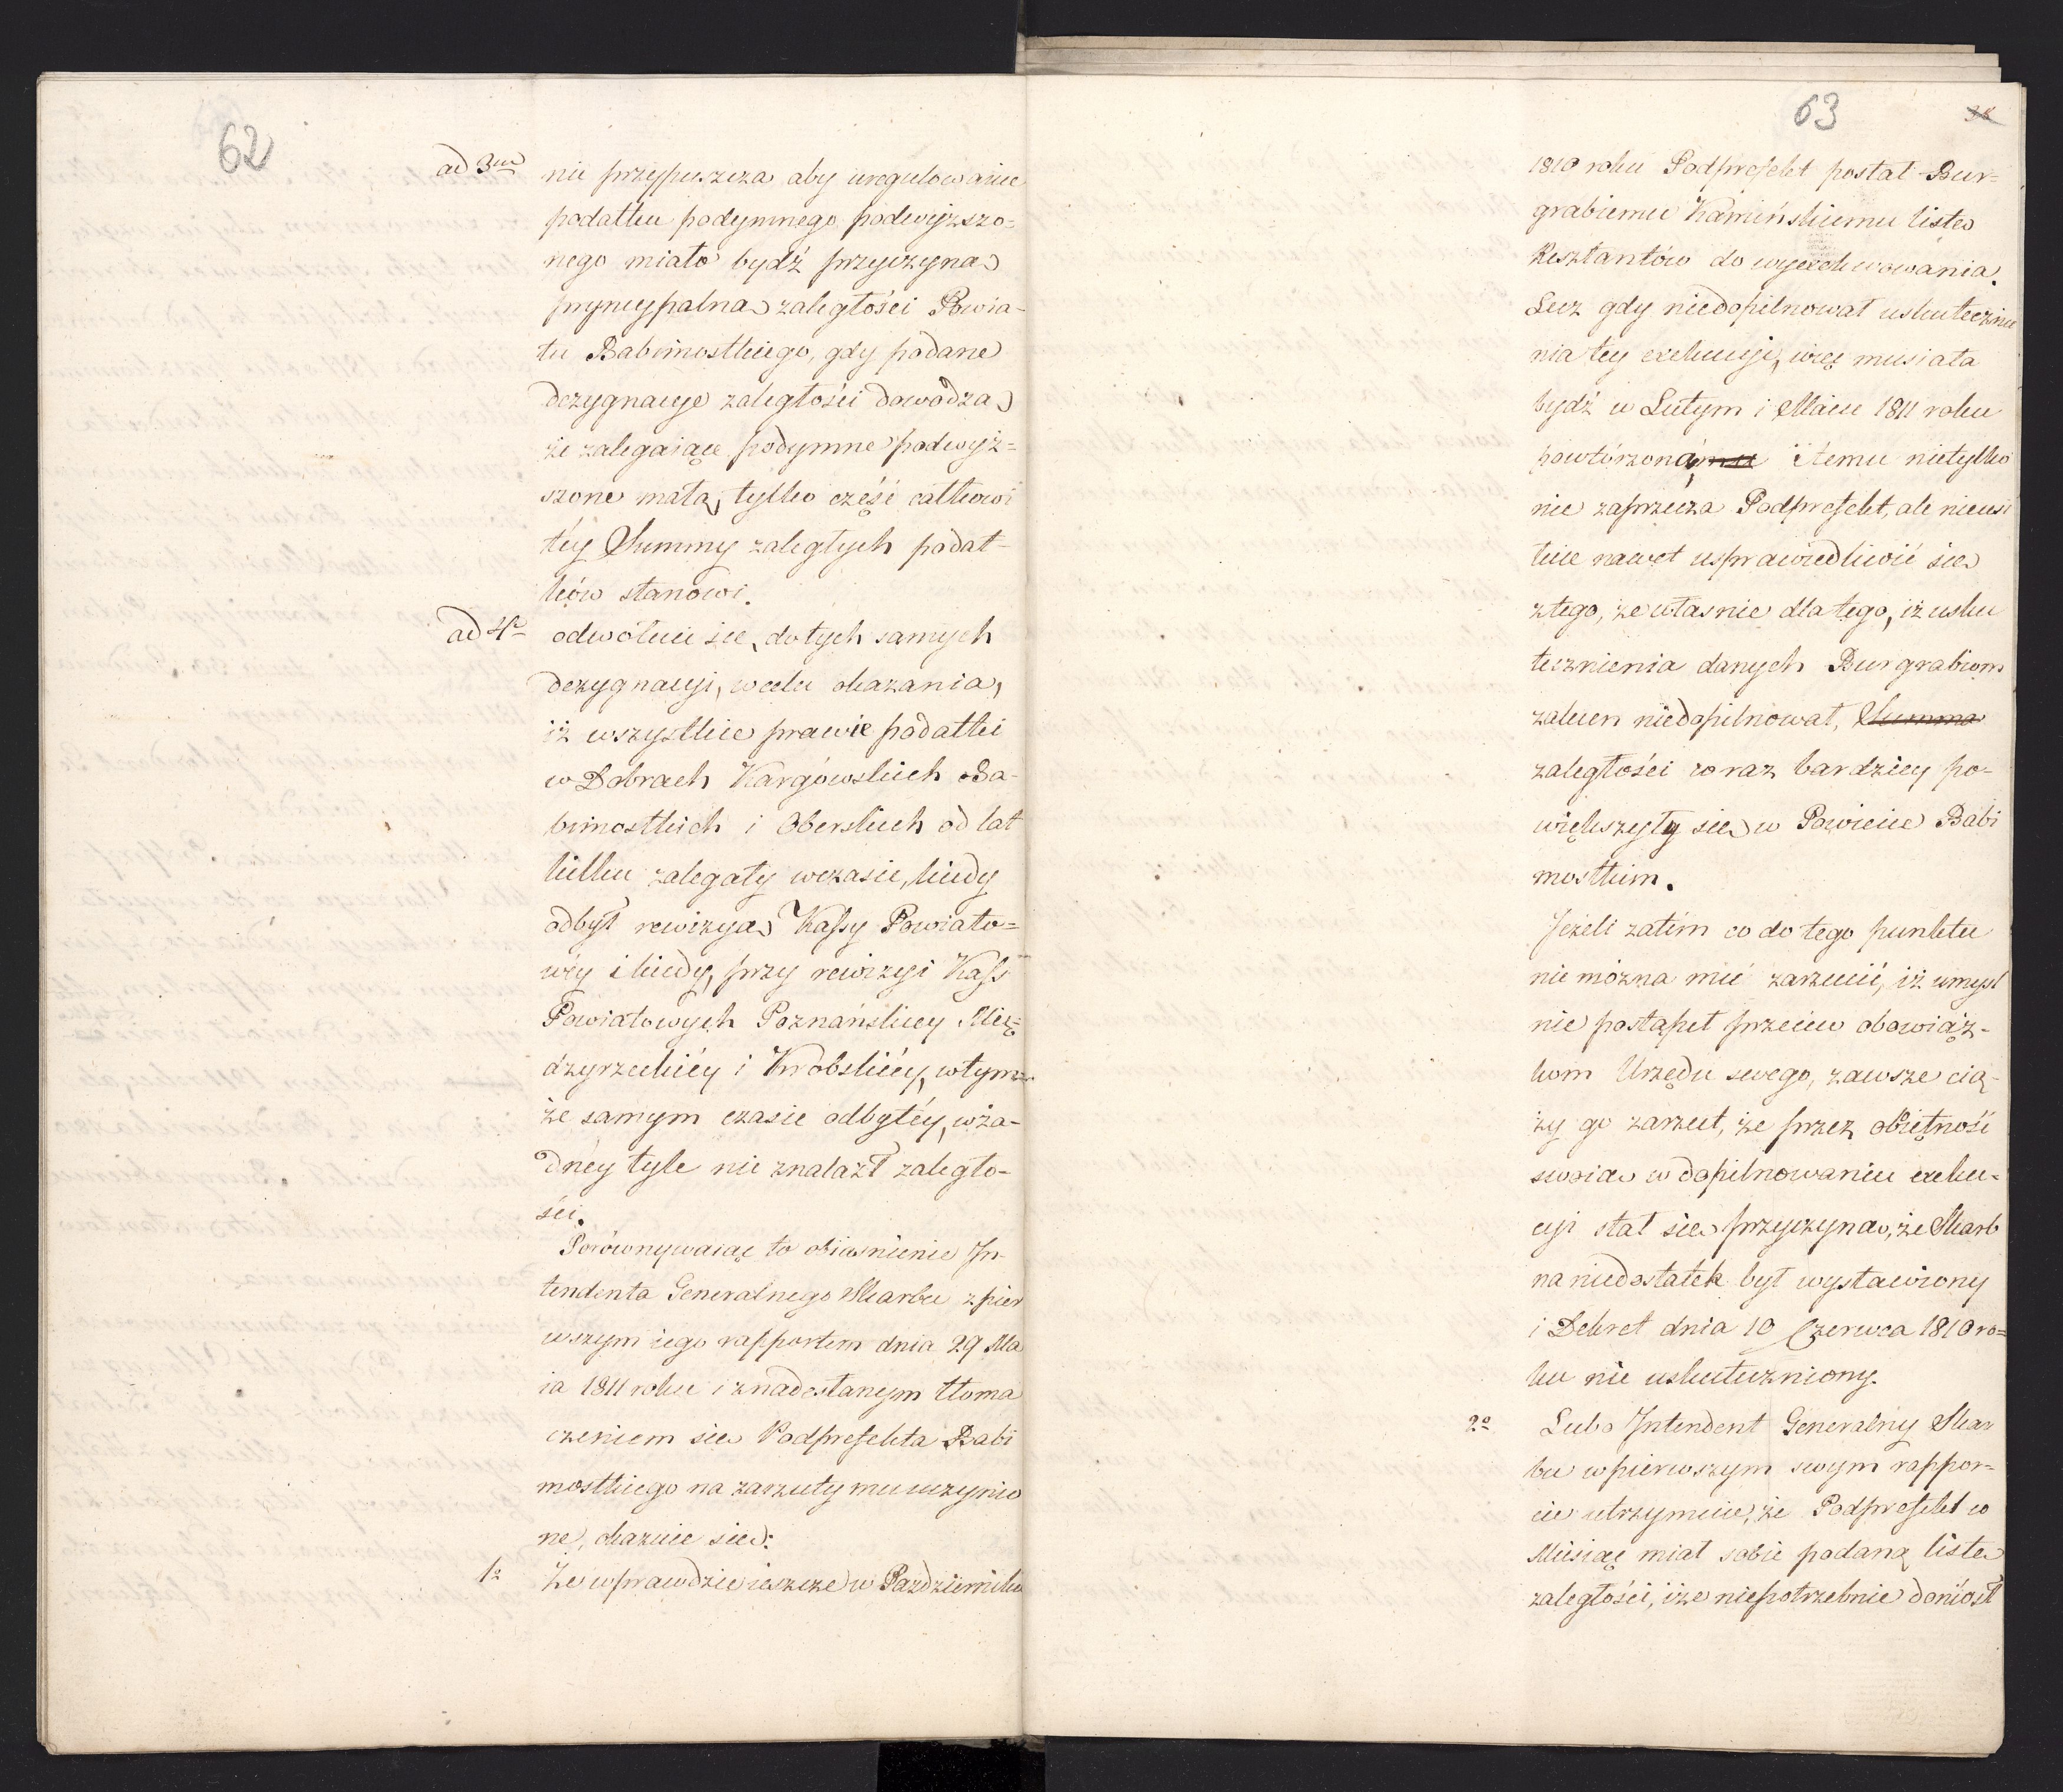 62
ad 3um nie przypuszcza aby uregulowanie
podatku podymnego podwyższo-
nego miało bydź przyczyną
pryncypalną zaległości Powia-
tu Babimostkiego, gdy podane
dezygnacye zaległości dowodzą
że zalegaiące podymne podwyż=
szone małą tylko część całkowi
téy Summy zaległych podat-
ków stanowi.
ad 4o odwołuie się do tych samych
dezygnacyi, w celu okazania,
iż wszystkie prawie podatki
w Dobrach Kargowskich Ba-
bimostkich i Oberskich od lat
kilku zalegały w czasie, kiedy
odbył rewizyą Kassy Powiato=
wéy i kiedy, przy rewizyi Kass
Powiatowych Poznańskiey Mię=
dzyrzeckiéy i Krobskiéy, w tym
że samym czasie odbytéy, w ża-
dnéy tyle nie znalazł zaległo-
ści.
Porównywaiąc to obiaśnienie In-
tendenta Generalnego Skarbu z pier
wszym iego rapportem dnia 29 Ma
ia 1811 roku i z nadesłanym tłoma
czeniem się Podprefekta Babi
mostkiego na zarzuty mu uczynio
ne, okazuie się:
1o Że wprawdzie ieszcze w Pazdzierniku
63
38
1810 roku Podprefekt posłał Bur=
grabiemu Kamińskiemu listę
Resztantów do wyexekwowania.
Lecz gdy niedopilnował uskutecznie
nia tey exekucyi, więc musiała
bydź w Lutym i Maiu 1811 roku
powtórzoną, i temu nietylko
nie zaprzecza Podprefekt, ale nieusi
łuie nawet usprawiedliwić się
z tego, że własnie dla tego, iż usku
tecznienia danych Burgrabiom
zaleceń niedopilnował, Summa
zaległości coraz bardziey po-
większyły się w Powiecie Babi
mostkim.
Jeżeli zatém co do tego punktu
nie można mu zarzucić, iż umyśl
nie postąpił przeciw obowiąz-
kom Urzędu swego, zawsze cią-
ży go zarzut, że przez obiętność
swoią w dopilnowaniu exeku-
cyi stał się przyczyną, że Skarb
na niedostatek był wystawiony
i Dekret dnia 10 Czerwca 1810 ro=
ku nie uskuteczniony.
2o Lubo Intendent Generalny Skar
bu w pierwszym swym rappor=
cie utrzymuie, że Podprefekt co
Miesiąc miał sobie podaną listę
zaległości, i że niepotrzebnie doniósł